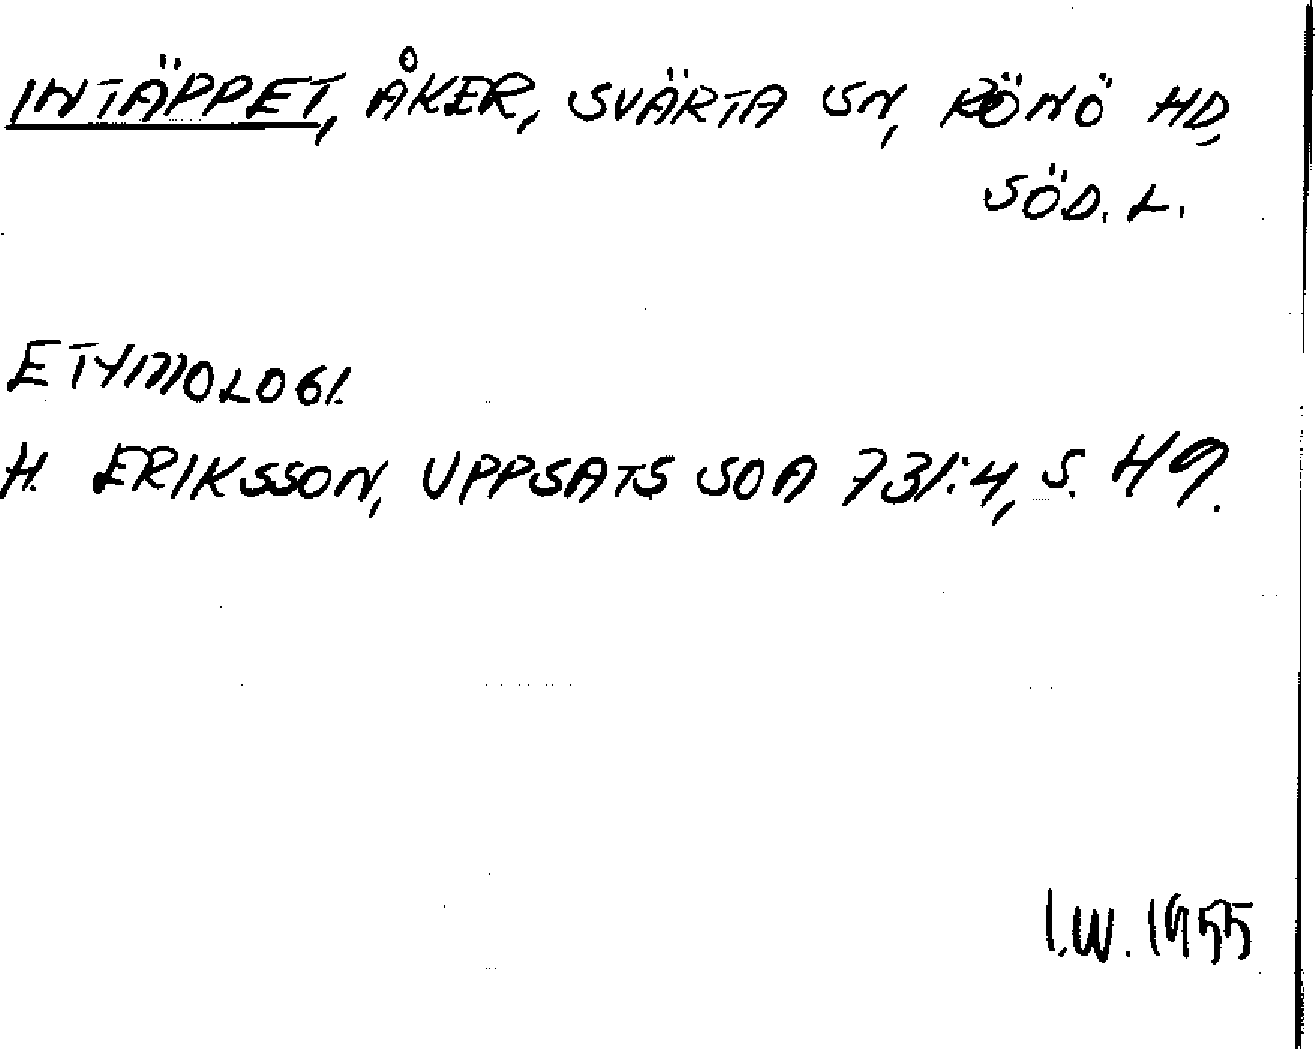 INTÄPPET, ÅKER, SVÄRTA SN, RÖNÖ HD,
SÖD. L.
ETYMOLOGI.
H. ERIKSSON, UPPSATS SOA 731:4, S. 49.
I.W. 1955